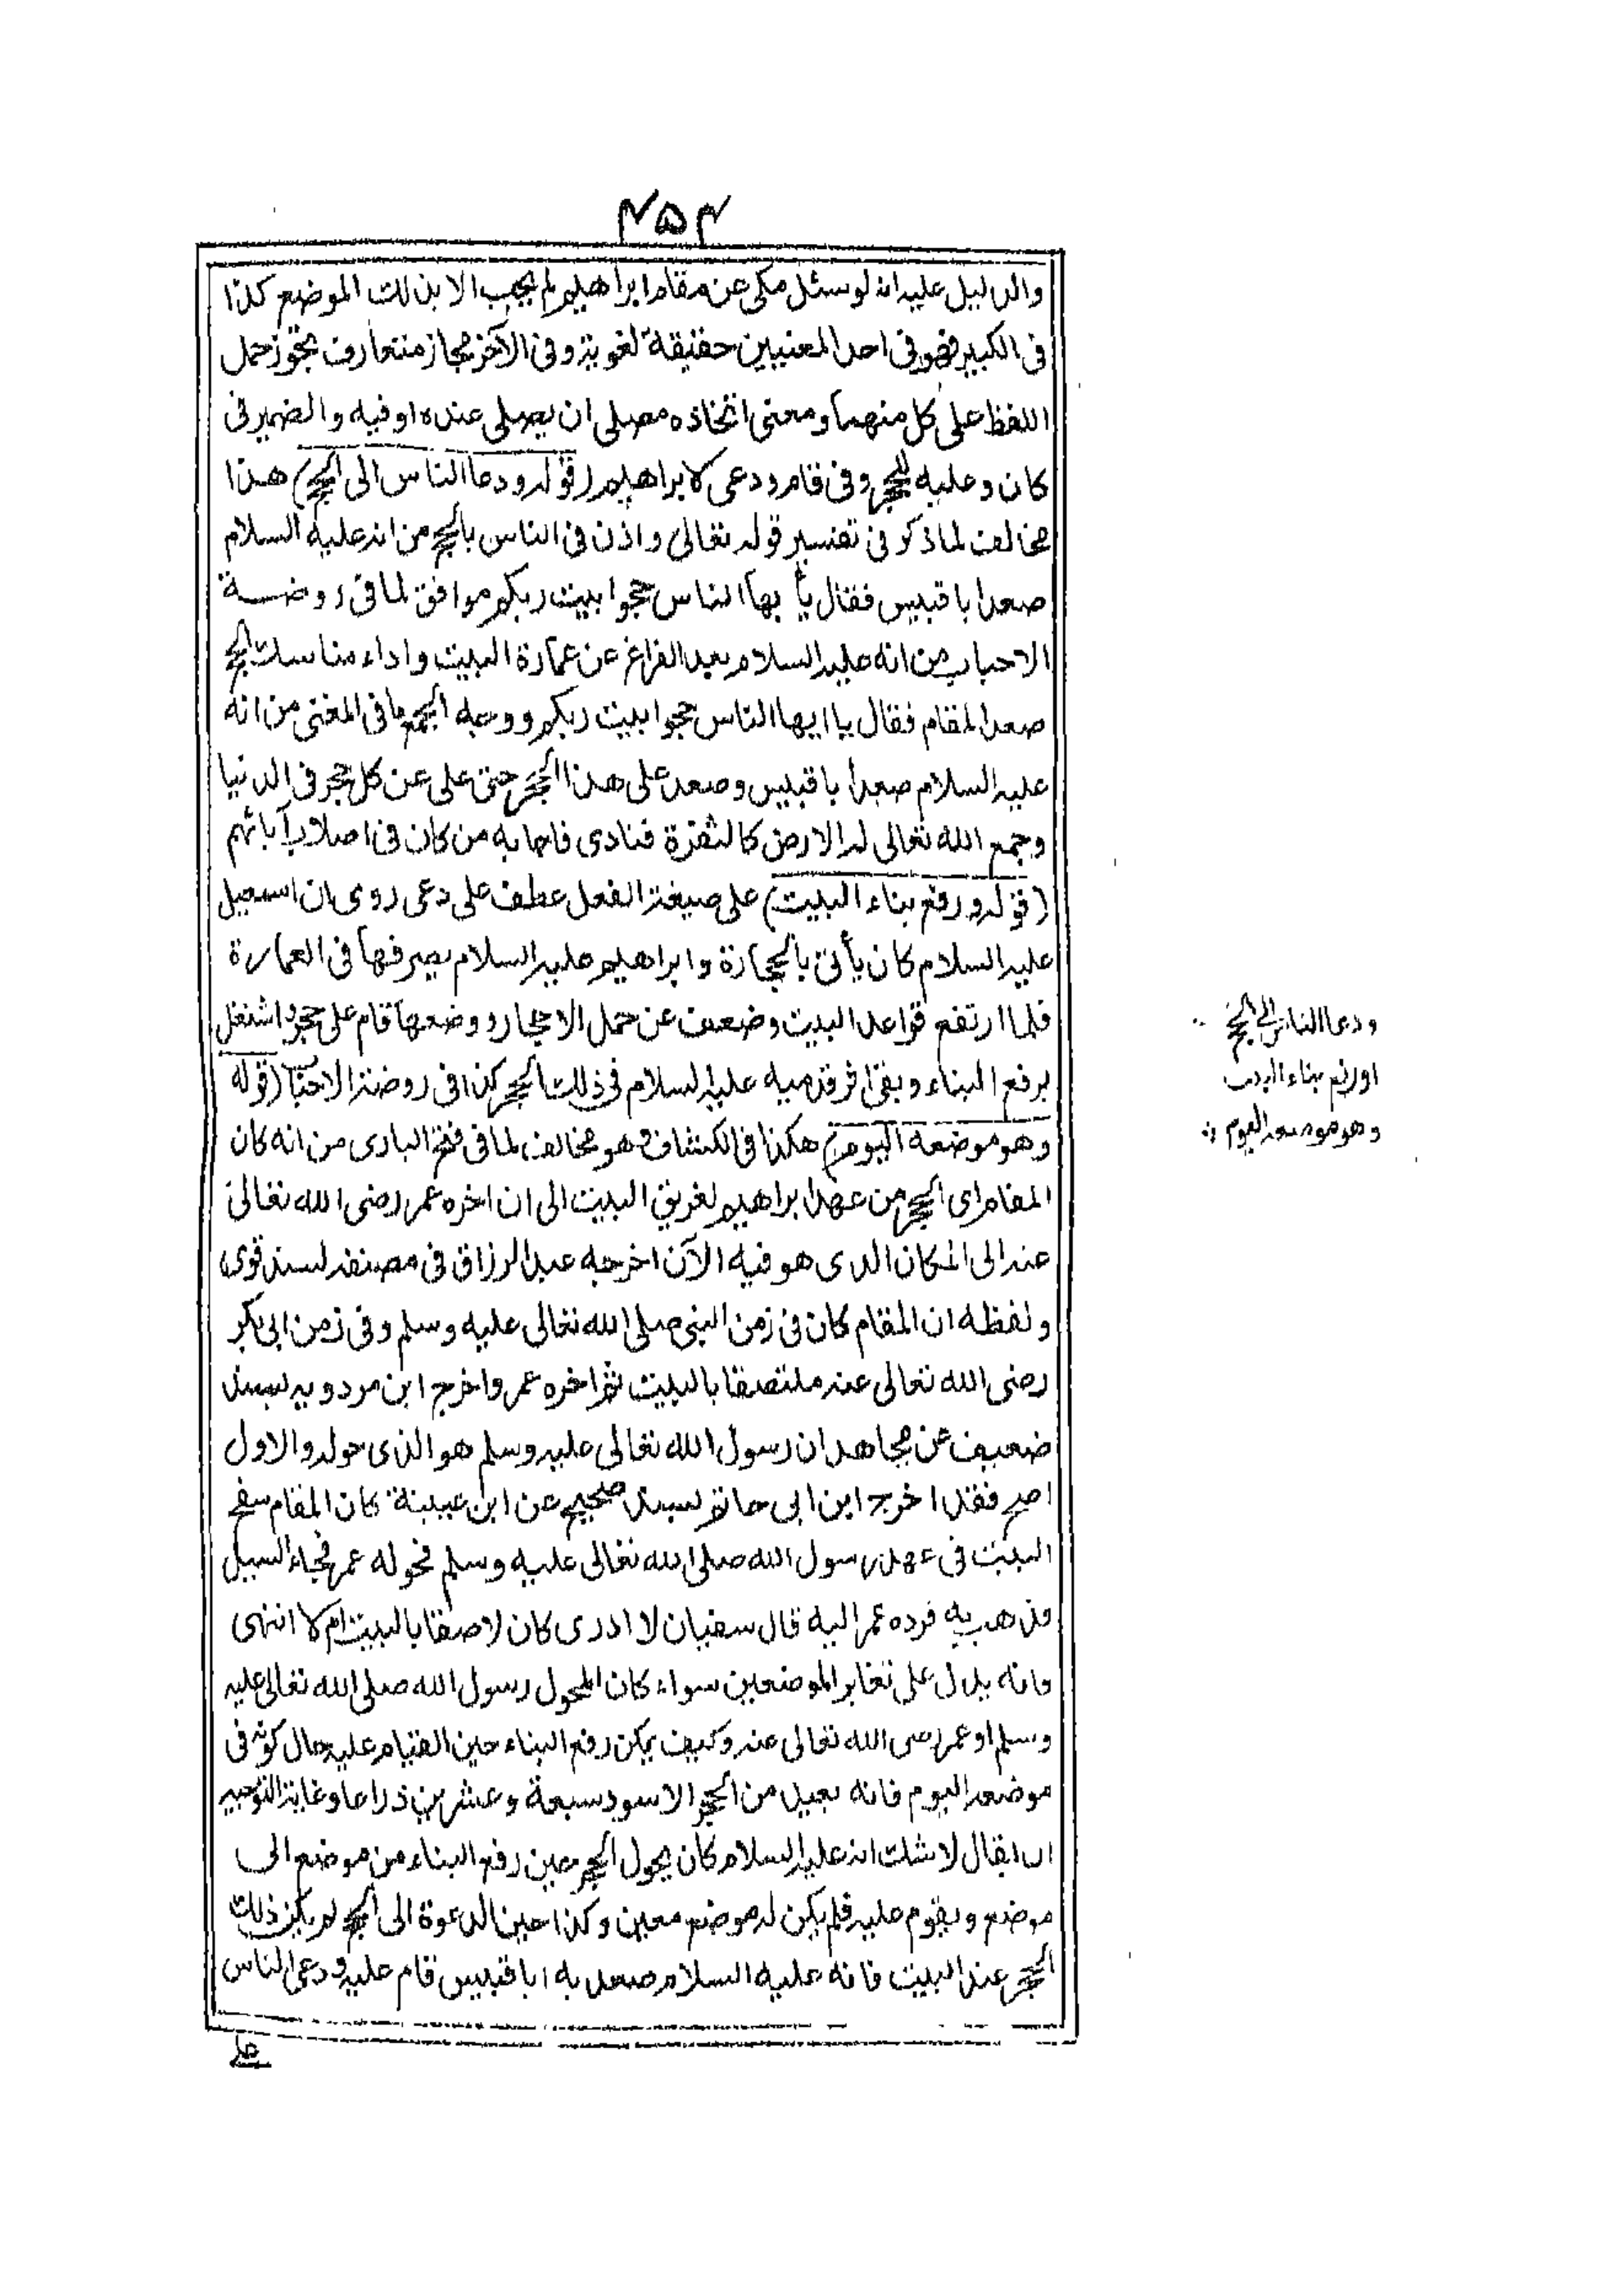 ۴۵۴
والدليل عليه انه لو سئل مكى عن مقام ابراهيم لم يجب الا بذلك الموضع كذا
فى الكبير فهو فى احد المعنيين حقيقة لغوية وفى الآخر مجاز متعارف يجوز حمل
اللفظ على كل منهما ومعنى اتخاذه مصلى ان يصلى عنده او فيه والضمير فى
كان وعليه للحجر وفى قام ودعى لابراهيم (قوله ودعا الناس الى الحج) هذا
مخالف لما ذكر فى تفسير قوله تعالى واذن فى الناس بالحج من انه عليه السلام
صعد ابا قبيس فقال يا ايها الناس حجوا بيت ربكم موافق لما فى روضة
الاحباب من انه عليه السلام بعد الفراغ عن عمارة البيت واداء مناسك الحج
صعد المقام فقال يا ايها الناس حجوا بيت ربكم ووجه الجمع ما فى المغنى من انه
عليه السلام صعد ابا قبيس وصعد على هذا الحجر حتى على عن كل حجر فى الدنيا
وجمع الله تعالى له الارض كالثفرة فنادى فاجابه من كان فى اصلاب آبائهم
(قوله ورفع بناء البيت) على صيغة الفعل عطف على دعى روى ان اسمعيل
عليه السلام كان يأتى بالحجارة وابراهيم عليه السلام يصرفها فى العمارة
فلما ارتفع قواعد البيت وضعف عن حمل الاحجار ووضعها قام على حجر واشتغل
برفع البناء وبقى اثر قدميه عليه السلام فى ذلك الحجر كذا فى روضة الاحباب (قوله
وهو موضعه اليوم) هكذا فى الكشاف وهو مخالف لما فى فتح البارى من انه كان
المقام اى الحجر من عهد ابراهيم لغريق البيت الى ان اخره عمر رضى الله تعالى
عنه الى المكان الذى هو فيه الآن اخرجه عبد الرزاق فى مصنفه بسند قوى
ولفظه ان المقام كان فى زمن النبى صلى الله تعالى عليه وسلم وفى زمن ابى بكر
رضى الله تعالى عنه ملتصقا بالبيت ثم اخره عمر واخرج ابن مردويه بسند
ضعيف عن مجاهد ان رسول الله تعالى عليه وسلم هو الذى حوله والاول
اصح فقد اخرج ابن ابى حاتم بسند صحيح عن ابن عيينة كان المقام سفح
البيت فى عهد رسول الله صلى الله تعالى عليه وسلم فحوله عمر فجاء السيل
فذهب به فرده عمر اليه قال سفيان لا ادرى كان لاصقا بالبيت ام لا انتهى
وانه يدل على تغاير الموضعين سواء كان المحول رسول الله صلى الله تعالى عليه
وسلم او عمر رضى الله تعالى عنه وكيف يمكن رفع البناء حين القيام عليه حال كونه فى
موضعه اليوم فانه بعيد من الحجر الاسود سبعة وعشرين ذراعا وغاية التوجيه
ان يقال لا شك انه عليه السلام كان يحول الحجر حين رفع البناء من موضع الى
موضع ويقوم عليه فلم يكن له موضع معين وكذا حين الدعوة الى الحج لم يكن ذلك
الحجر عند البيت فانه عليه السلام صعد به ابا قبيس قام عليه ودعى الناس
ودعا الناس الى الحج
او رفع بناء البيت
وهو موضعه اليوم